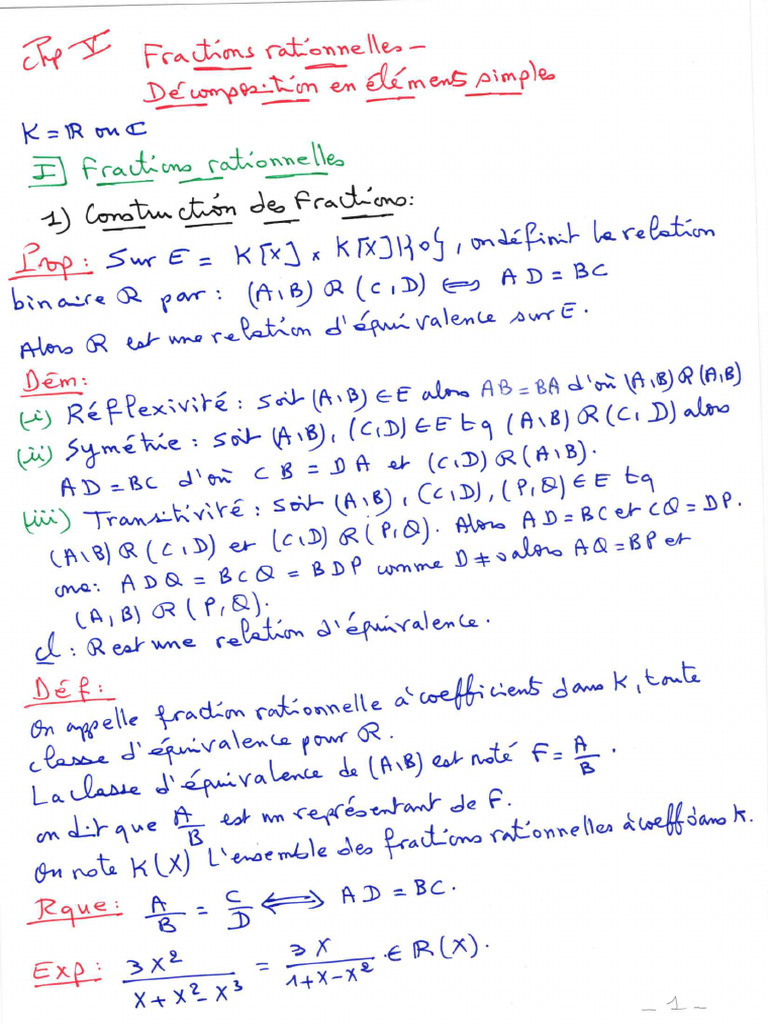 Chp V Fractions rationnelles -
Décomposition en éléments simples
K = ℝ ou ℂ
I Fractions rationnelles
1) Construction des Fractions:
Prop: Sur E = K[X] × K[X]\{0}, on définit la relation
binaire R par : (A,B) R (C,D) ⟺ AD = BC
Alors R est une relation d'équivalence sur E.
Dém:
(i) Réflexivité : soit (A,B) ∈ E alors AB = BA d'où (A,B) R (A,B)
(ii) Symétrie : soit (A,B), (C,D) ∈ E tq (A,B) R (C,D) alors
AD = BC d'où CB = DA et (C,D) R (A,B).
(iii) Transitivité : soit (A,B), (C,D), (P,Q) ∈ E tq
(A,B) R (C,D) et (C,D) R (P,Q). Alors AD = BC et CQ = DP.
ona: ADQ = BCQ = BDP comme D ≠ 0 alors AQ = BP et
(A,B) R (P,Q).
cl : R est une relation d'équivalence.
Déf:
On appelle fraction rationnelle à coefficient dans K, toute
classe d'équivalence pour R.
La classe d'équivalence de (A,B) est noté F = A/B.
on dit que A/B est un représentant de F.
On note K(X) L'ensemble des fractions rationnelles à coeff dans K.
Rque: A/B = C/D ⟺ AD = BC.
Exp: 3X²/(X + X² - X³) = 3X/(1 + X - X²) ∈ ℝ(X).
- 1 -